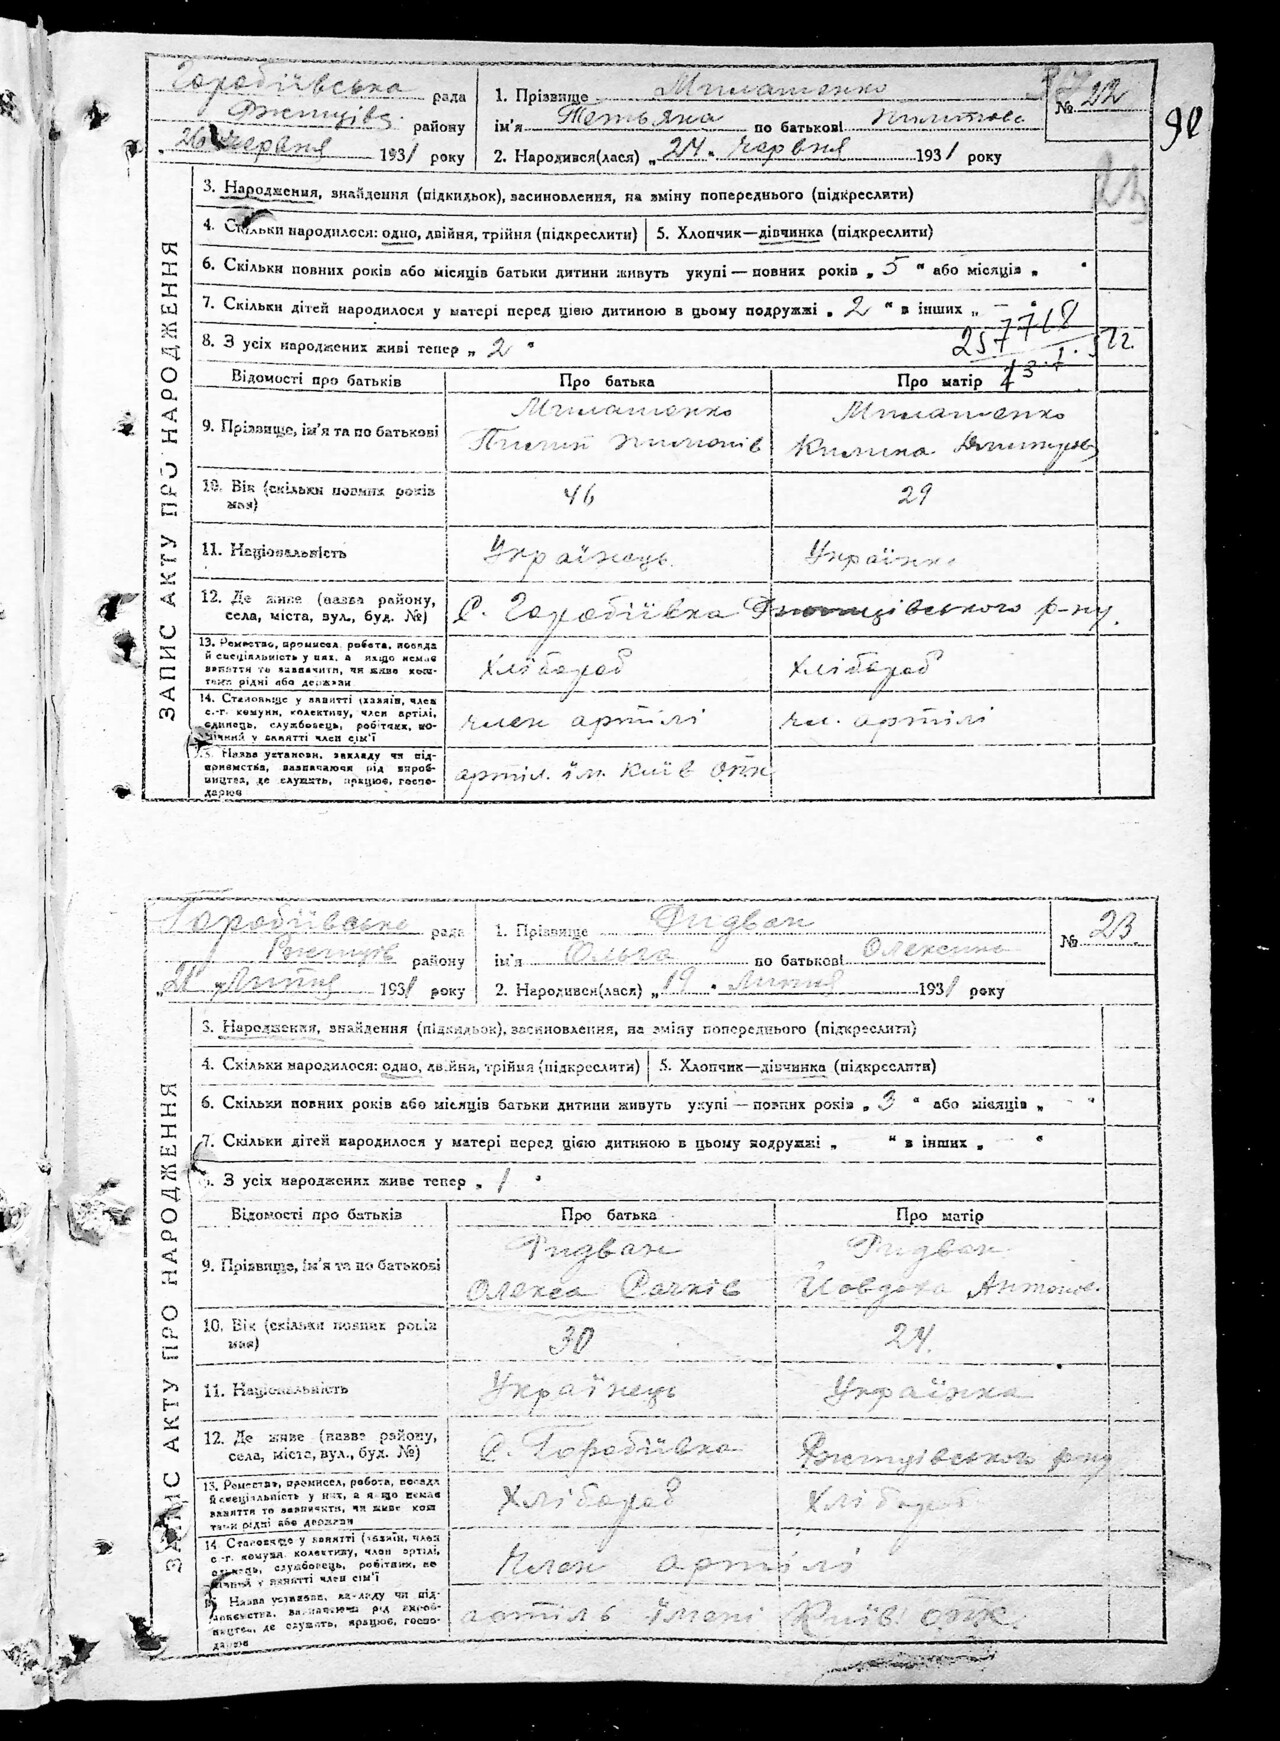 Горобіївська рада
Ржищів. району
„26“ червня 1931 року
1. Прізвище Милашенко
ім'я Тетьяна по батькові Пилипова
2. Народився(лася) „24“ червня 1931 року
№ 22
ЗАПИС АКТУ ПРО НАРОДЖЕННЯ
3. Народження, знайдення (підкидьок), засиновлення, на зміну попереднього (підкреслити)
4. Скільки народилося: одно, двійня, трійня (підкреслити)
5. Хлопчик—дівчинка (підкреслити)
6. Скільки повних років або місяців батьки дитини живуть укупі — повних років „5“ або місяців „ “
7. Скільки дітей народилося у матері перед цією дитиною в цьому подружжі „2“ в інших „—“
8. З усіх народжених живі тепер „2“
257718
Відомості про батьків
Про батька
Про матір
9. Прізвище, ім'я та по батькові
Милашенко
Милашенко
10. Вік (скільки повних років має)
46
29
11. Національність
Українець
Українка
12. Де живе (назва району, села, міста, вул., буд. №)
С. Горобіївка Ржищівського р-ну.
13. Ремество, промисел, робота, посада й спеціяльність у них, а якщо немає заняття то зазначити, чи живе коштами рідні або держави
Хлібороб
Хлібороб
14. Становище у занятті (хазяїн, член с.-г. комуни, колективу, член артілі, одинець, службовець, робітник, помічний у занятті член сім'ї
член артілі
чл. артілі
15. Назва установи, закладу чи підприємства, зазначаючи рід виробництва, де служить, працює, господарює
артіл. їм. Київ ОПК
Горобіївська рада
Ржищів району
„21“ Липня 1931 року
1. Прізвище Ридван
ім'я Ольга по батькові Олексина
2. Народився(лася) „19“ Липня 1931 року
№ 23.
ЗАПИС АКТУ ПРО НАРОДЖЕННЯ
3. Народження, знайдення (підкидьок), засиновлення, на зміну попереднього (підкреслити)
4. Скільки народилося: одно, двійня, трійня (підкреслити)
5. Хлопчик—дівчинка (підкреслити)
6. Скільки повних років або місяців батьки дитини живуть укупі — повних років „3“ або місяців „ “
7. Скільки дітей народилося у матері перед цією дитиною в цьому подружжі „ “ в інших „ “
8. З усіх народжених живе тепер „1“
Відомості про батьків
Про батька
Про матір
9. Прізвище, ім'я та по батькові
Ридван
Олекса
Ридван
Йовдоха Антонов.
10. Вік (скільки повних років має)
30
24.
11. Національність
Українець
Українка
12. Де живе (назва району, села, міста, вул., буд. №)
С. Горобіївка
Ржищівського р-ну
13. Ремество, промисел, робота, посада й спеціяльність у них, а якщо немає заняття то зазначити, чи живе коштами рідні або держави
Хлібороб
Хлібороб
14. Становище у занятті (хазяїн, член с.-г. комуни, колективу, член артілі, одинець, службовець, робітник, помічний у занятті член сім'ї
Член артілі
15. Назва установи, закладу чи підприємства, зазначаючи рід виробництва, де служить, працює, господарює
артіль їмені Київ. ОПК.